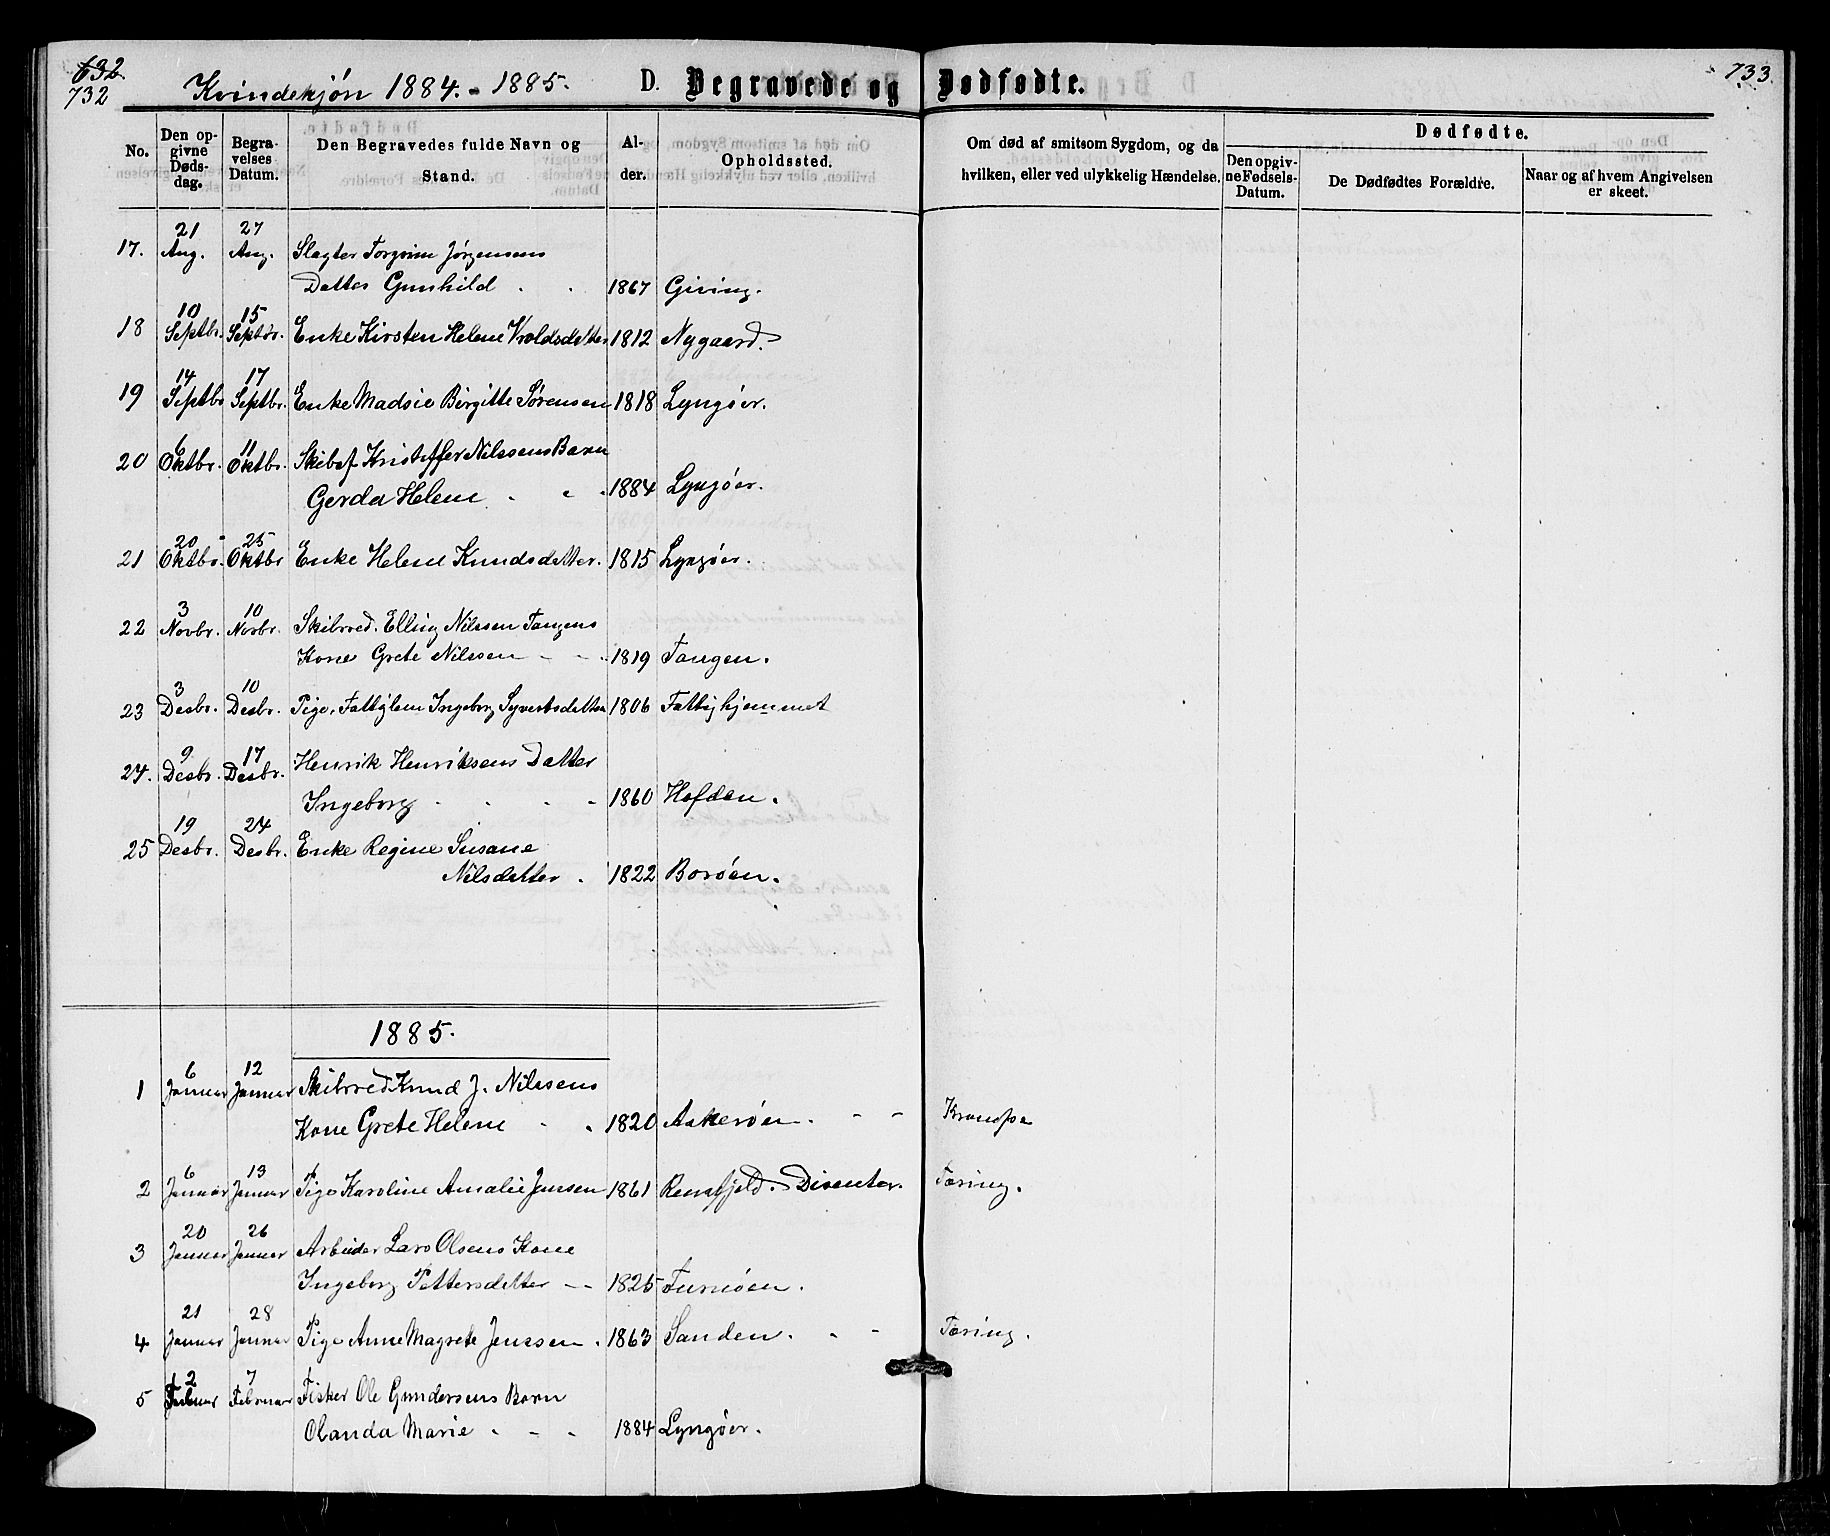 632
732
Kvindekjön 1884. - 1885.
D. Begravede og Dødfødte.
733.
No.
Den opgivne Dødsdag.
Begravelses Datum.
Den Begravedes fulde Navn og Stand.
Alder.
Opholdssted.
Om død af smitsom Sygdom, og da hvilken, eller ved ulykkelig Hændelse.
Dødfødte.
Den opgivne Fødsels-Datum.
De Dødfødtes Forældre.
Naar og af hvem Angivelsen er skeet.
17. 21 Aug. 27 Aug. Slagter Torgrim Jørgensens
Datter Gunhild 1867 Giving.
18 10 Septbr. 15 Septbr. Enke Kirsten Helene Vroldsdatter 1812 Nygaard.
19 14 Septbr 17 Septbr. Enke Madsie Birgitte Sørensen 1818 Lyngöer.
20 6 Oktbr. 11 Oktbr. Skibsf Kristoffer Nilssens Barn
Gerda Helene 1884 Lyngöer.
21 20 Oktbr. 25 Oktbr Enke Helene Knudsdatter. 1815 Lyngöer.
22 3 Novbr. 10 Novbr. Skibsred. Elling Nilssen Tangens
Kone Grete Nilssen 1819 Tangen.
23 3 Desbr. 10 Desbr. Pige, Fattiglem Ingeborg Syvertsdatter 1806 Fattighjemmet
24. 9 Desbr. 17 Desbr. Henrik Henriksens Datter
Ingeborg 1860 Hofden.
25 19 Desbr. 24 Desbr. Enke Regine Susane
Nilsdatter. 1822 Boröen.
1885.
1 6 Januar 12 Januar Skibsred Knud J. Nilssens
Kone Grete Helene 1820 Askeröen.
2 6 Januar 13 Januar Pige Karoline Amalie Jensen 1861 Rensfjeld. Disenter. Tæring.
3 20 Januar 26 Januar Arbeider Lars Olsens Kone
Ingeborg Pettersdatter 1825 Furuöen.
4 21 Januar 28 Januar Pige Anne Magrete Jenssen. 1863 Sanden. Tæring.
5 2 Februar 7 Februar Fisker Ole Gundersens Barn
Olanda Marie 1884 Lyngöer.